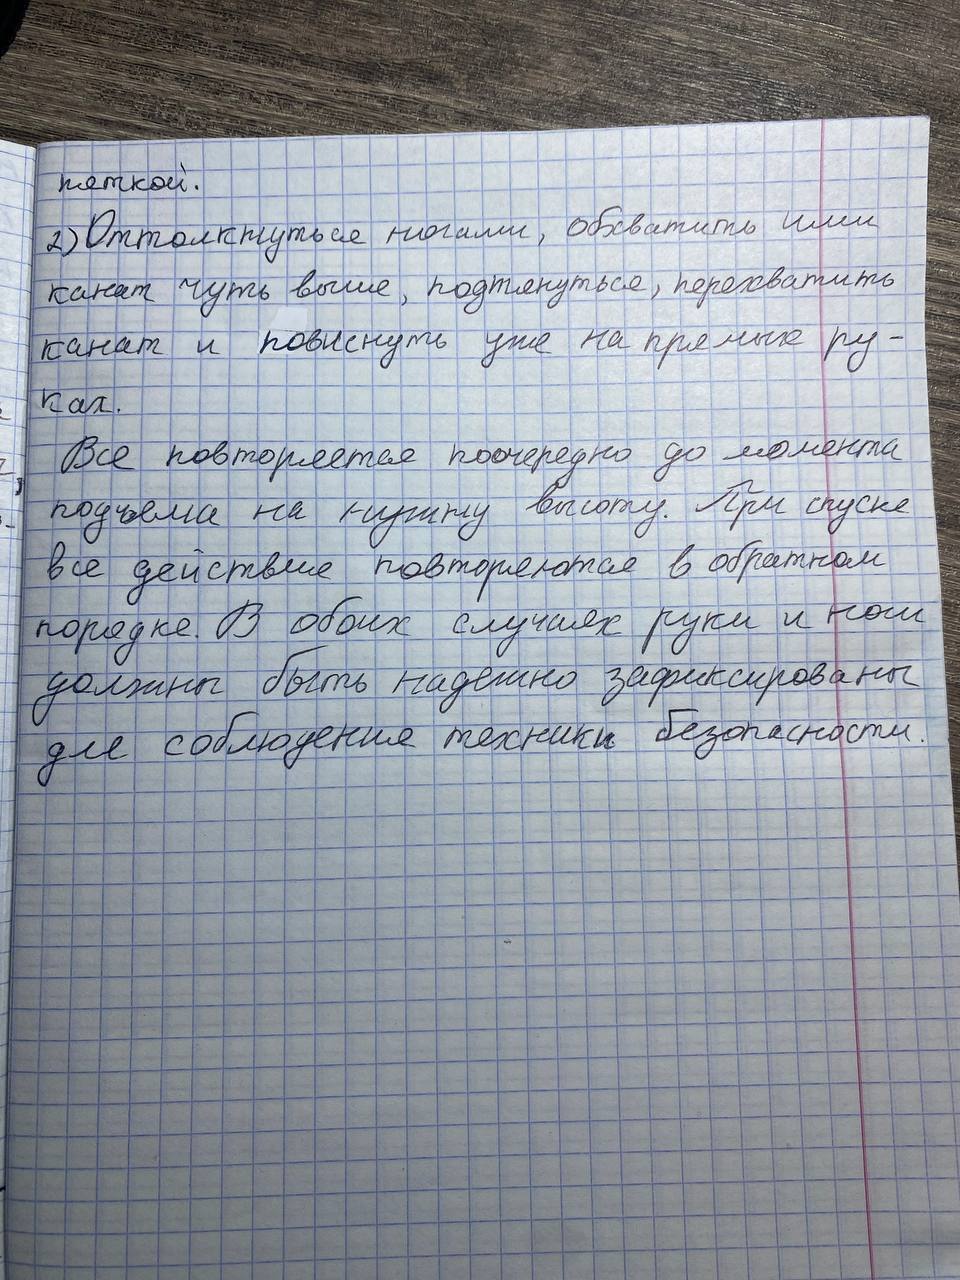 пяткой.
2) Оттолкнуться ногами, обхватить ими
канат чуть выше, подтянуться, перехватить
канат и повиснуть уже на прямых ру-
ках.
Все повторяется поочередно до момента
подъема на нужну высоту. При спуске
все действия повторяются в обратном
порядке. В обоих случаях руки и ноги
должны быть надежно зафиксированы
для соблюдения техники безопасности.